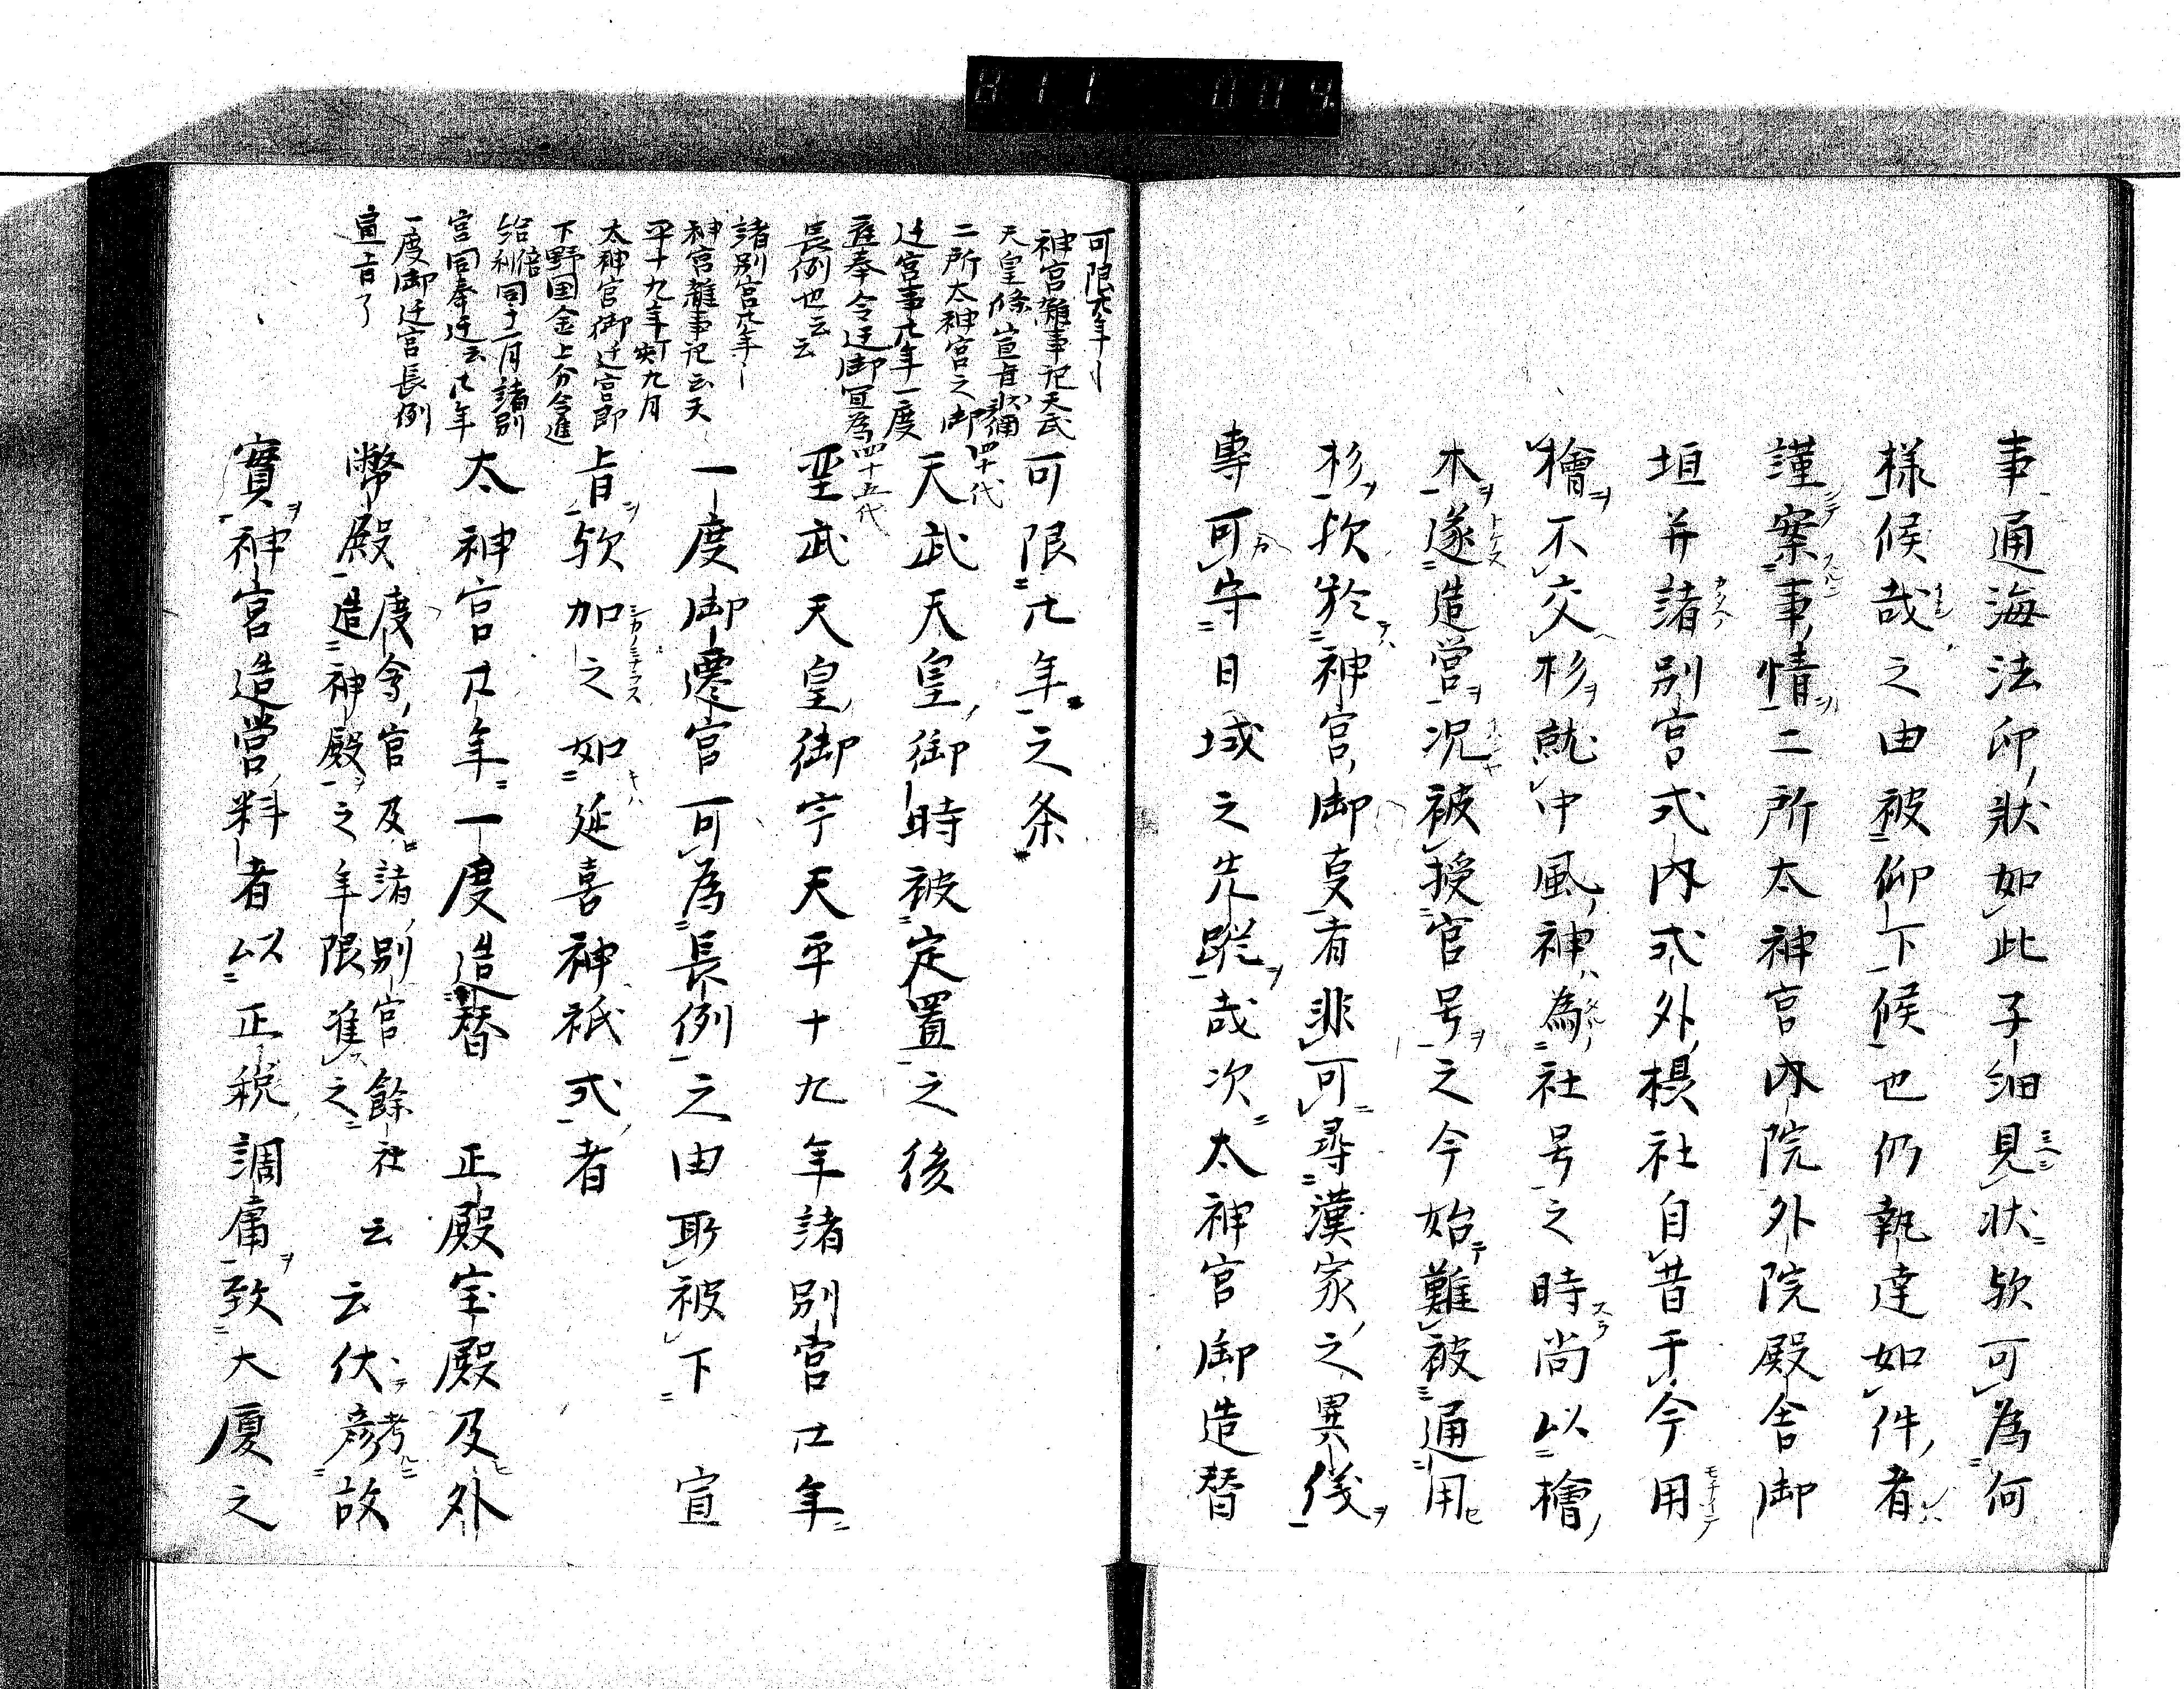 事通海法印状如此子細見状欤可為何
様候哉之由被仰下候也仍執達如件者
謹案事情二所太神宮内院外院殿舎御
垣并諸別宮式内式外摂社自昔于今用
檜不交杉就中風神為社号之時尚以檜
木遂造営況被授官号之今始難被通用
杉欤於神宮御事者非可尋漢家之異儀
専可守日域之先蹤哉次太神宮御造替
可限廿年之条
天武天皇御時被定置之後
四十代
聖武天皇御宇天平十九年諸別宮廿年
四十五代
一度御遷宮可為長例之由取被下 宣
旨欤加之如延喜神祇式者
太神宮廿年一度造替 正殿宝殿及外
幣殿度會宮及諸別宮餘社
造神殿之年限准之 云云伏考故
實神宮造営料者以正税調庸致大厦之
可限廿年
神宮雑事記天武
天皇條宣旨状稱
二所太神宮之御
遷宮事廿年一度
應奉令遷御宣為
長例也云云
諸別宮廿年
神宮雑事記云天
平十九年丁亥九月
太神宮御遷宮即
下野国金上分令進
給 同十二月諸別
宮同奉遷云廿年
一度御遷宮長例
宣旨了